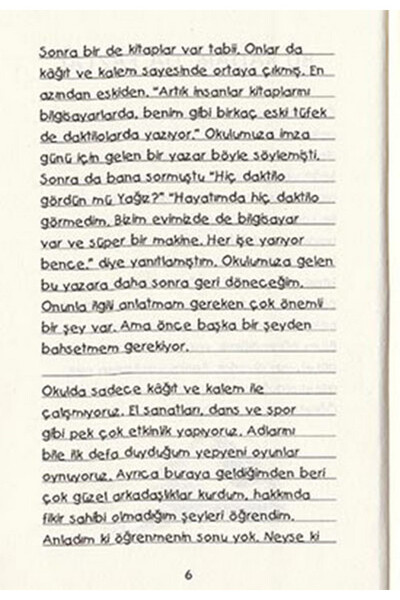 Sonra bir de kitaplar var tabii. Onlar da
kâğıt ve kalem sayesinde ortaya çıkmış. En
azından eskiden. "Artık insanlar kitaplarını
bilgisayarlarda, benim gibi birkaç eski tüfek
de daktilolarda yazıyor." Okulumuza imza
günü için gelen bir yazar böyle söylemişti.
Sonra da bana sormuştu "Hiç daktilo
gördün mü Yağız?" "Hayatımda hiç daktilo
görmedim. Bizim evimizde de bilgisayar
var ve süper bir makine. Her işe yarıyor
bence." diye yanıtlamıştım. Okulumuza gelen
bu yazara daha sonra geri döneceğim.
Onunla ilgili anlatmam gereken çok önemli
bir şey var. Ama önce başka bir şeyden
bahsetmem gerekiyor.
Okulda sadece kâğıt ve kalem ile
çalışmıyoruz. El sanatları, dans ve spor
gibi pek çok etkinlik yapıyoruz. Adlarını
bile ilk defa duyduğum yepyeni oyunlar
oynuyoruz. Ayrıca buraya geldiğimden beri
çok güzel arkadaşlıklar kurdum, hakkında
fikir sahibi olmadığım şeyleri öğrendim.
Anladım ki öğrenmenin sonu yok. Neyse ki
6